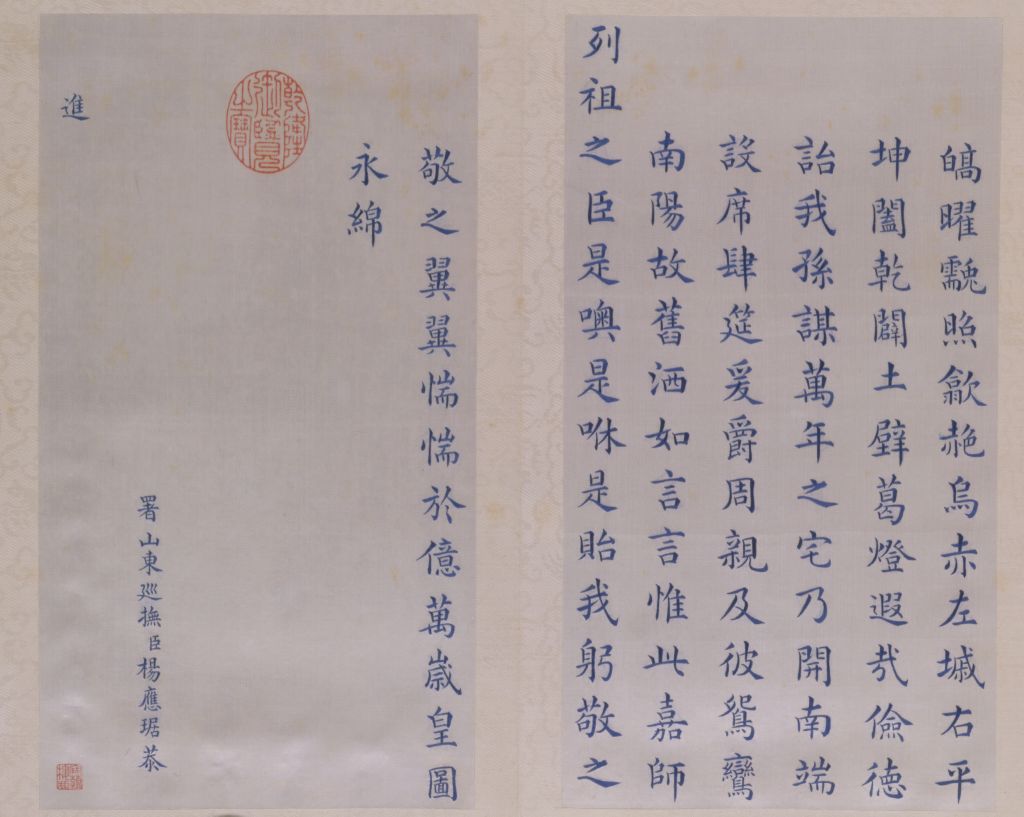 皜曜覶照歙赩烏赤左墄右平
坤闔乾闢土壁葛燈遐哉儉德
詒我孫謀萬年之宅乃開南端
設席肆筵爰爵周親及彼鴛鸞
南陽故舊洒如言言惟此嘉師
列祖之臣是噢是咻是貽我躬敬之
敬之翼翼惴惴於億萬歲皇圖
永綿
乾隆御覽之寶
署山東廵撫臣楊應琚恭
進